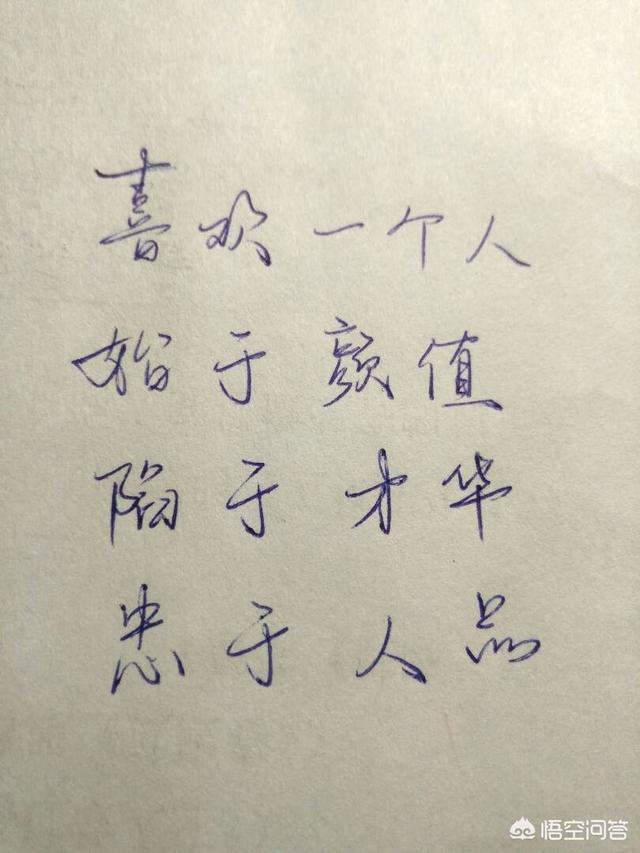 喜欢一个人
始于颜值
陷于才华
忠于人品
悟空问答